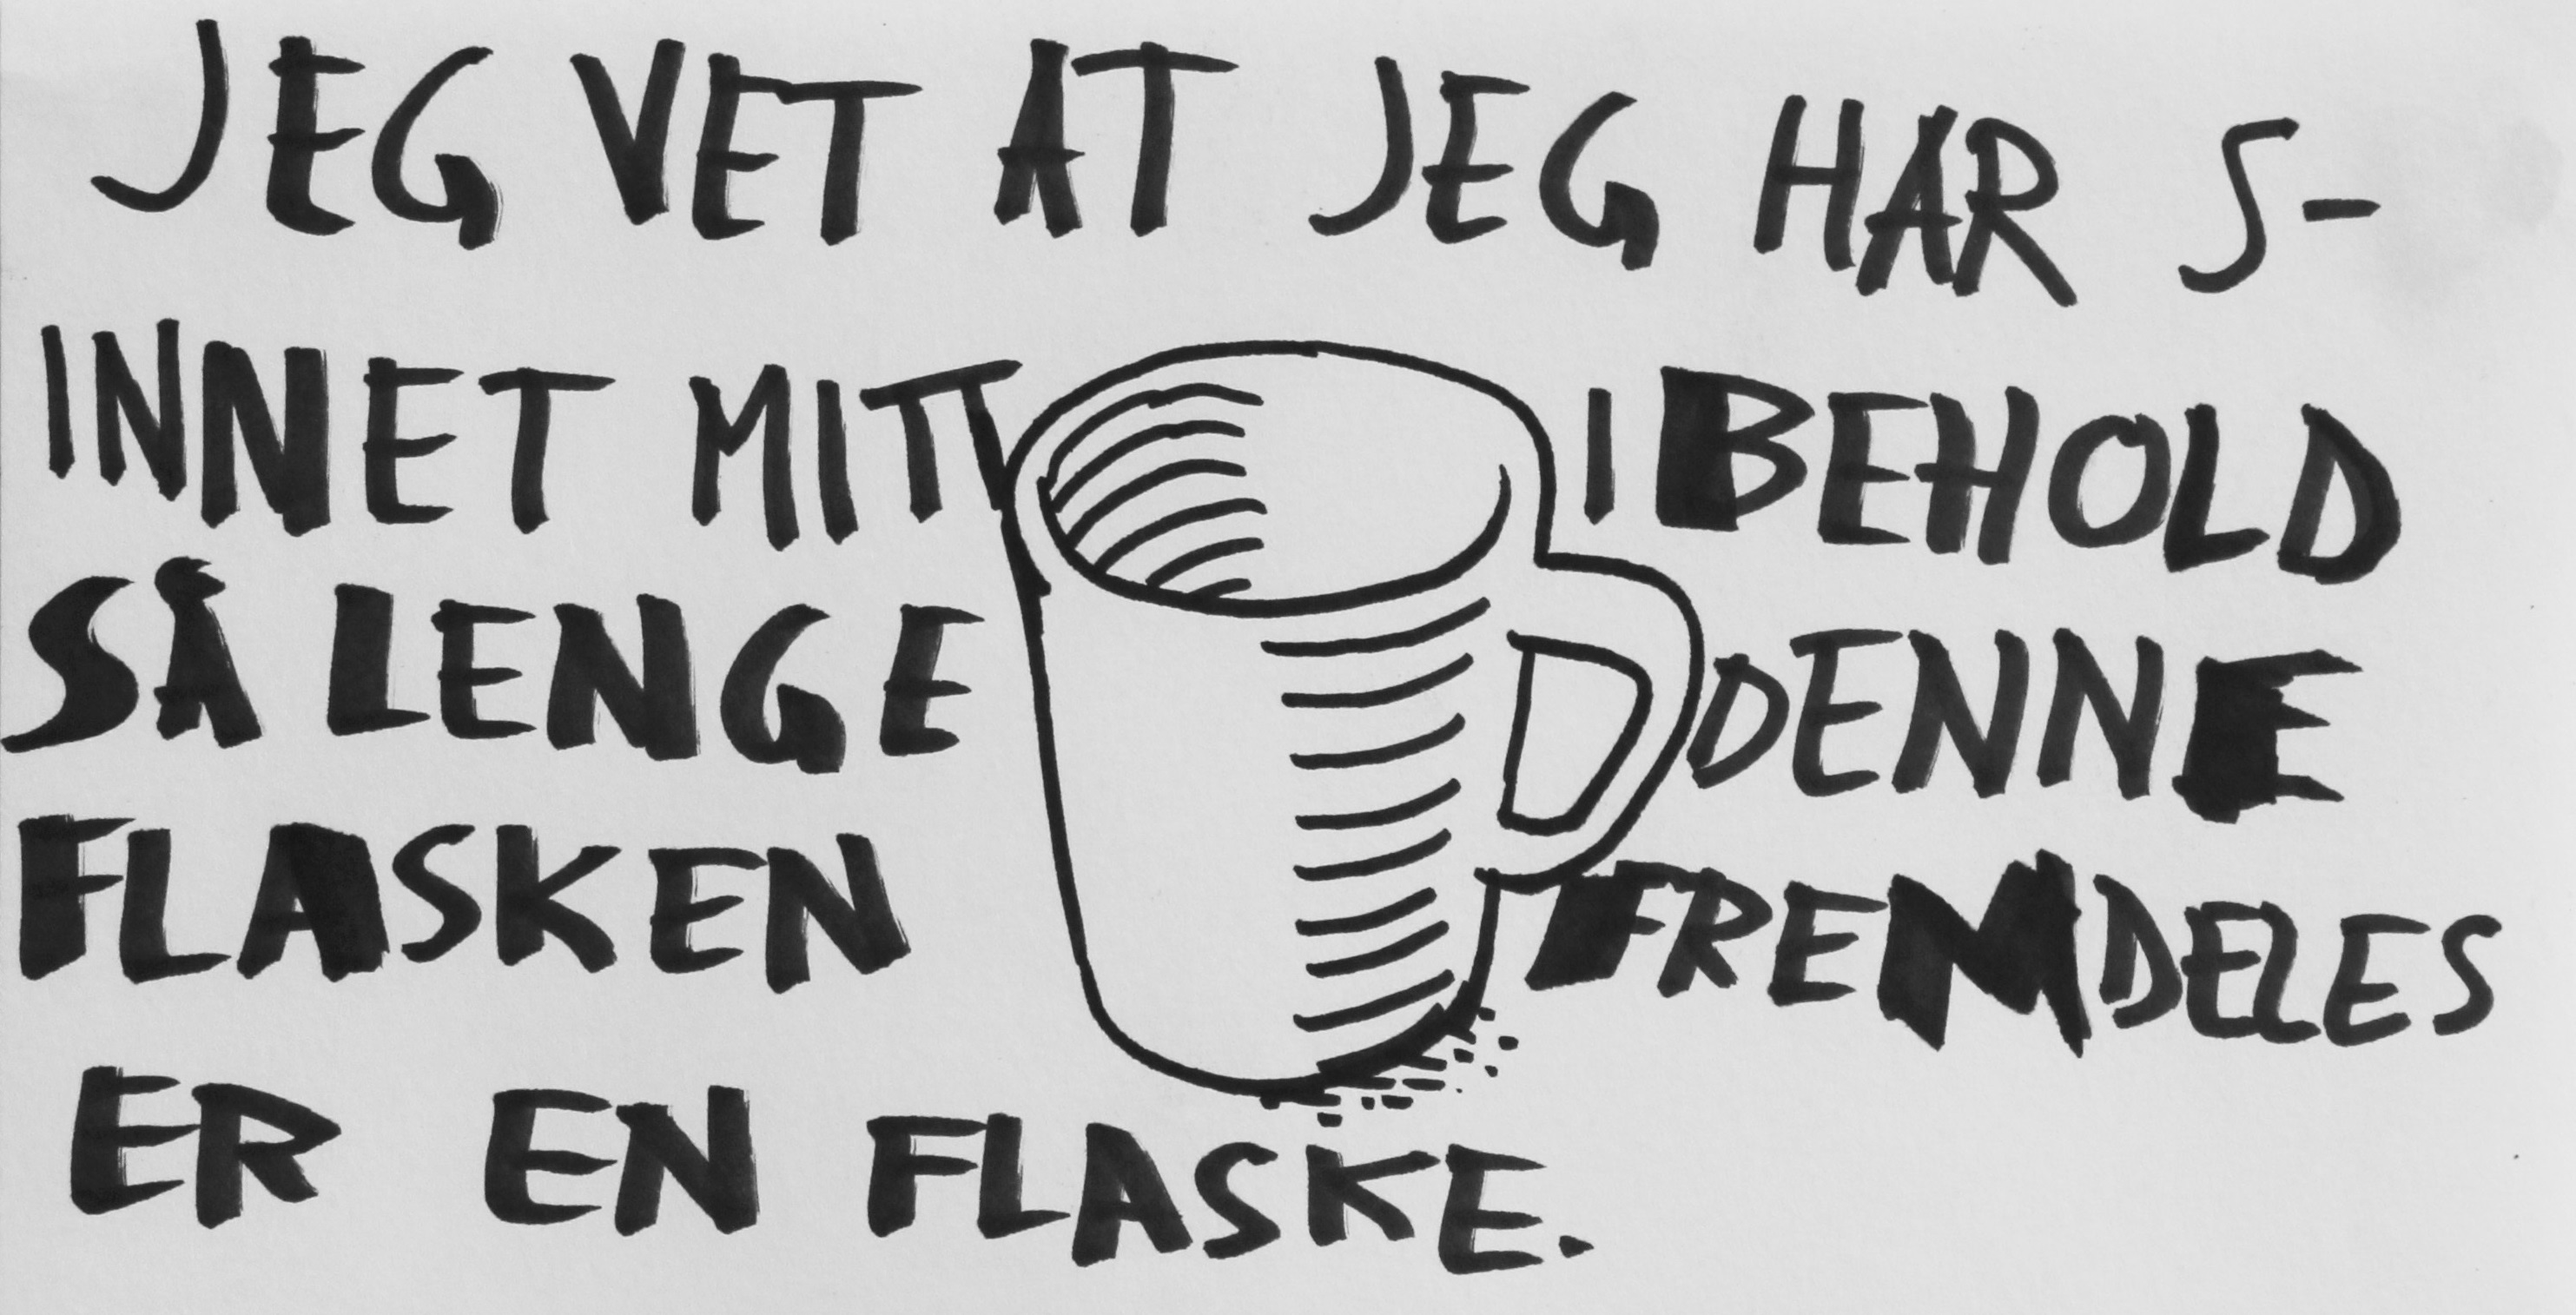 JEG VET AT JEG HAR S-
INNET MITT I BEHOLD
SÅ LENGE DENNE
FLASKEN FREMDELES
ER EN FLASKE.